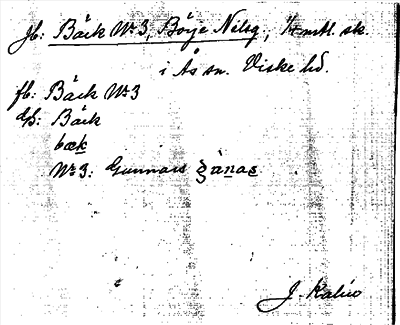 Jb: Bäck No 3, Börje Nilsg, 1/4 mtl. sk.
i Ås sn. Viske hd.
fb: Bäck No 3
Gk: Bäck
bæk
No 3: Gunnars gànas
J. Kalén